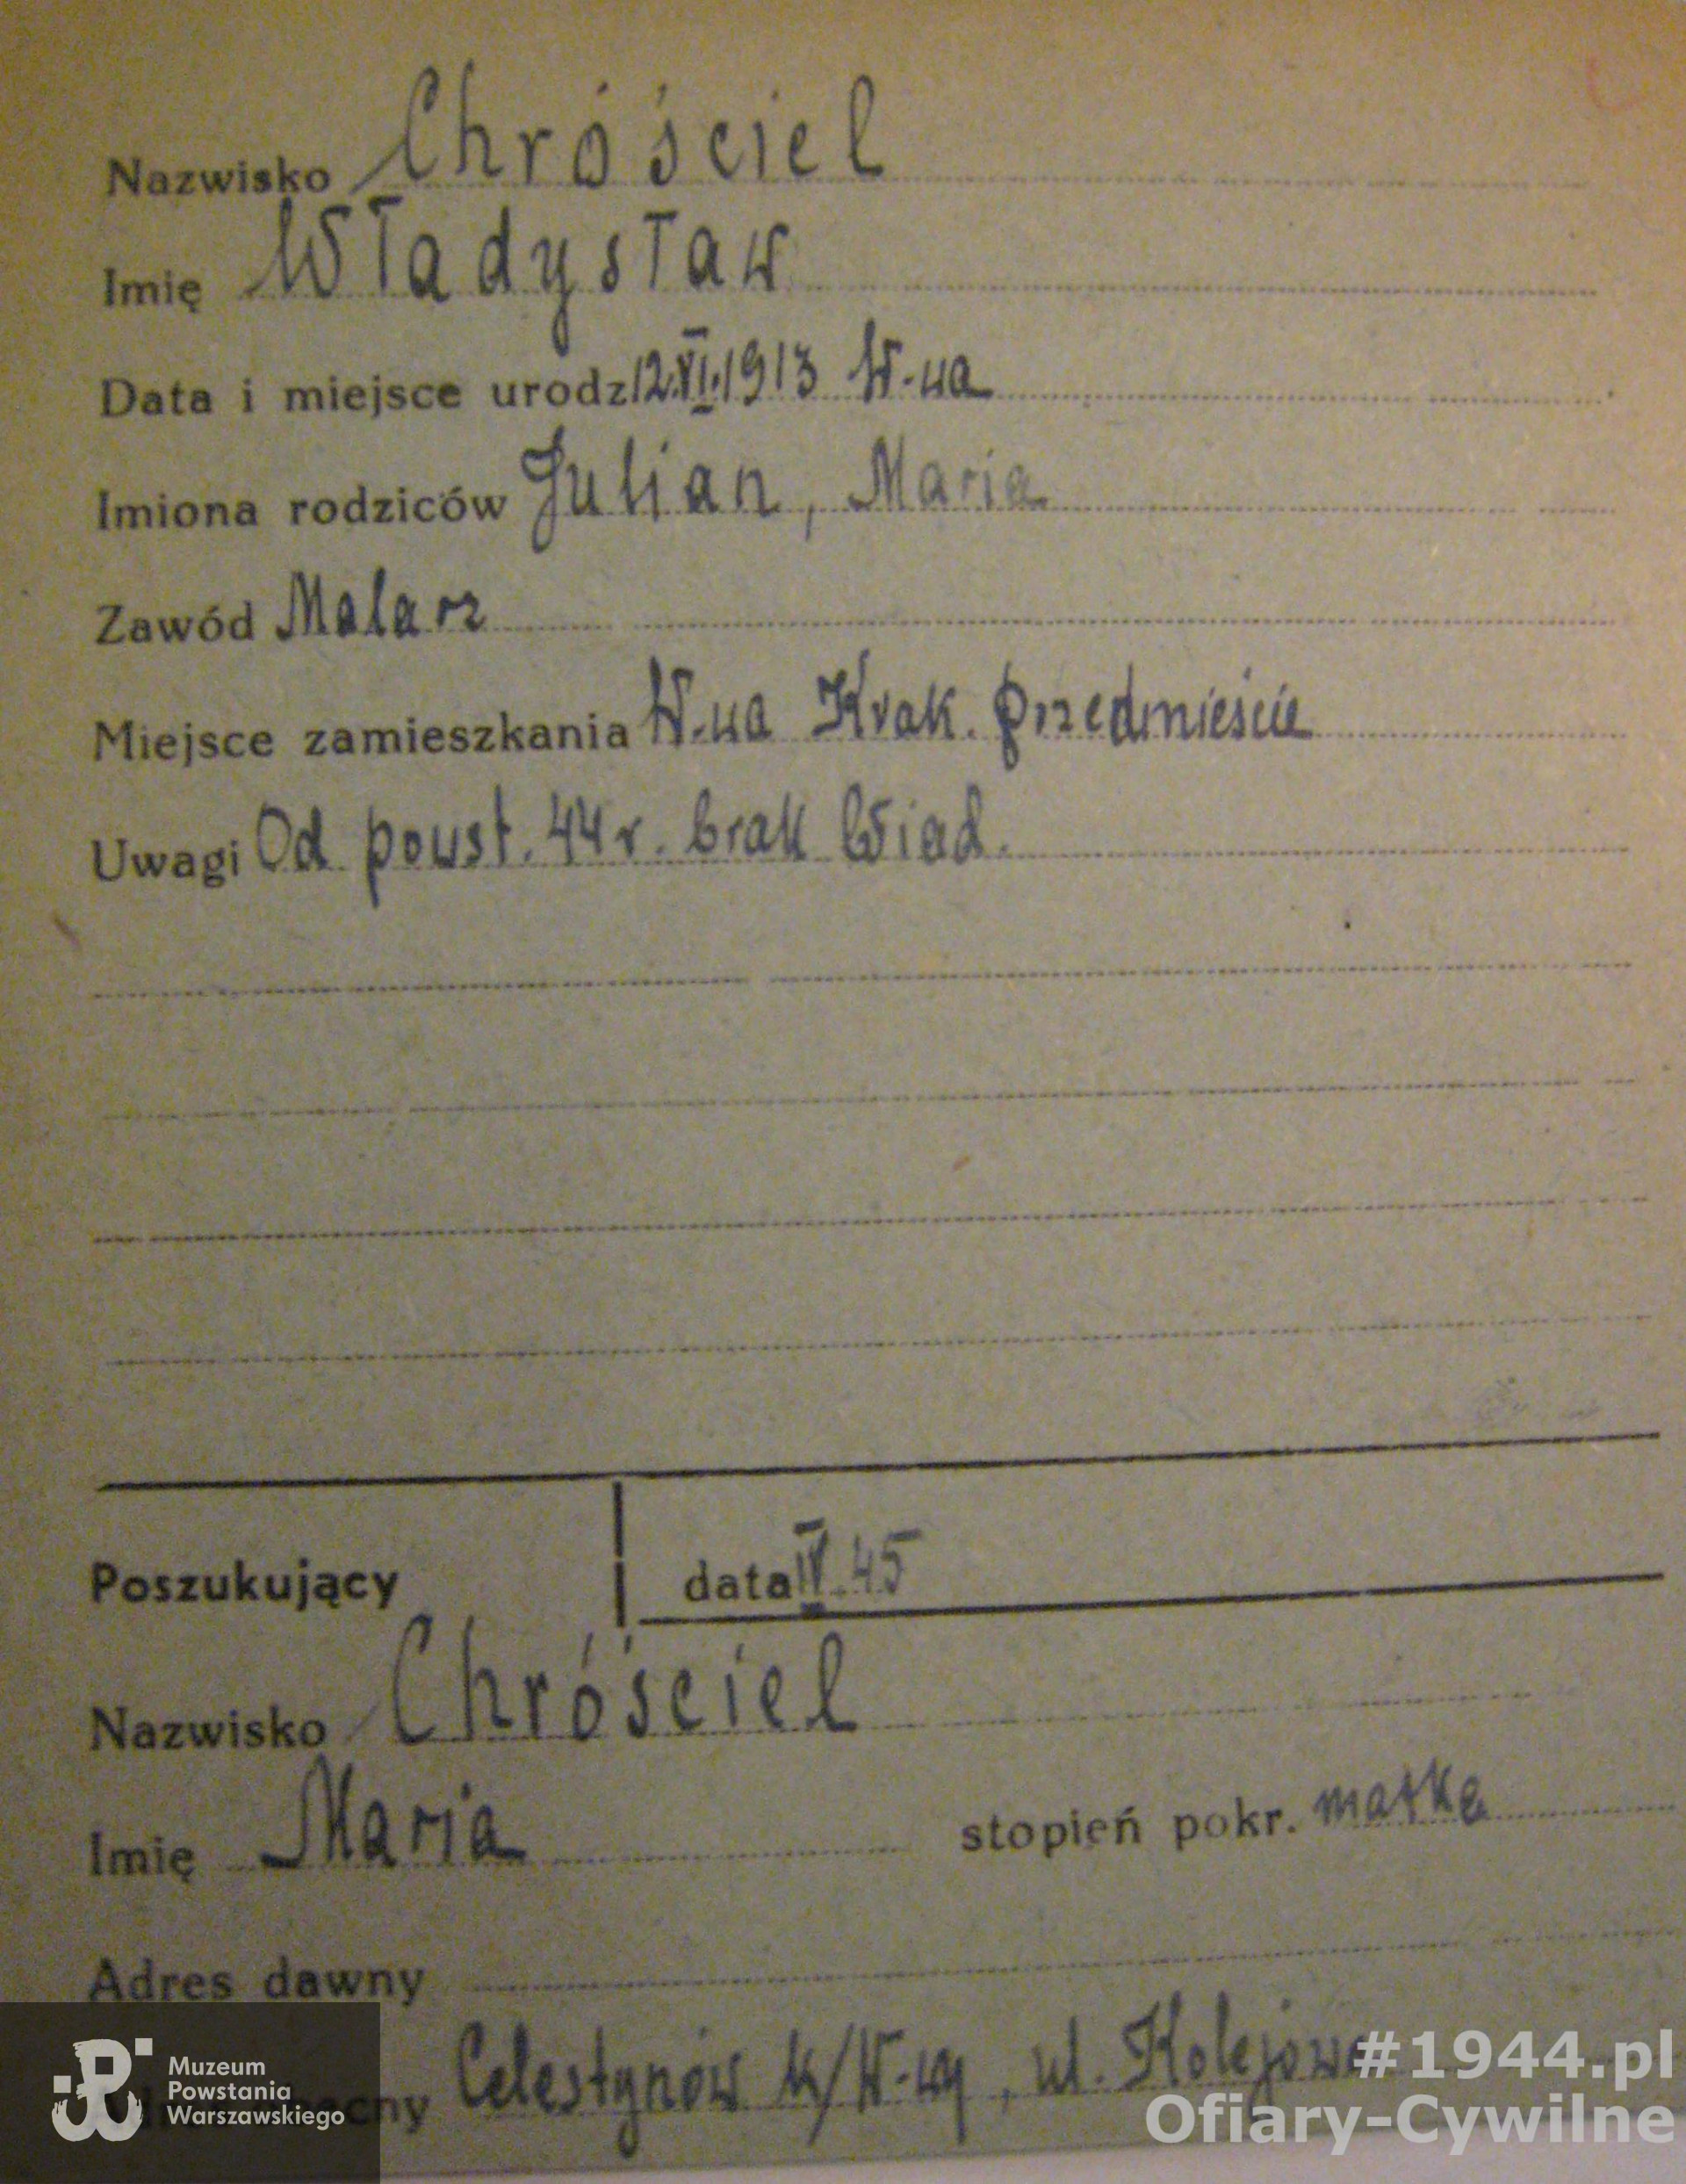 Nazwisko Chróściel
Imię Władysław
Data i miejsce urodz 12.VI.1913 W-wa
Imiona rodziców Julian, Maria
Zawód Malarz
Miejsce zamieszkania W-wa Krak. Przedmieście
Uwagi Od powst. 44 r. brak wiad.
Poszukujący data IV.45
Nazwisko Chróściel
Imię Maria stopień pokr. matka
Adres dawny
Celestynów k/W-wy, ul. Kolejowa
Muzeum
Powstania
Warszawskiego
#1944.pl
Ofiary-Cywilne